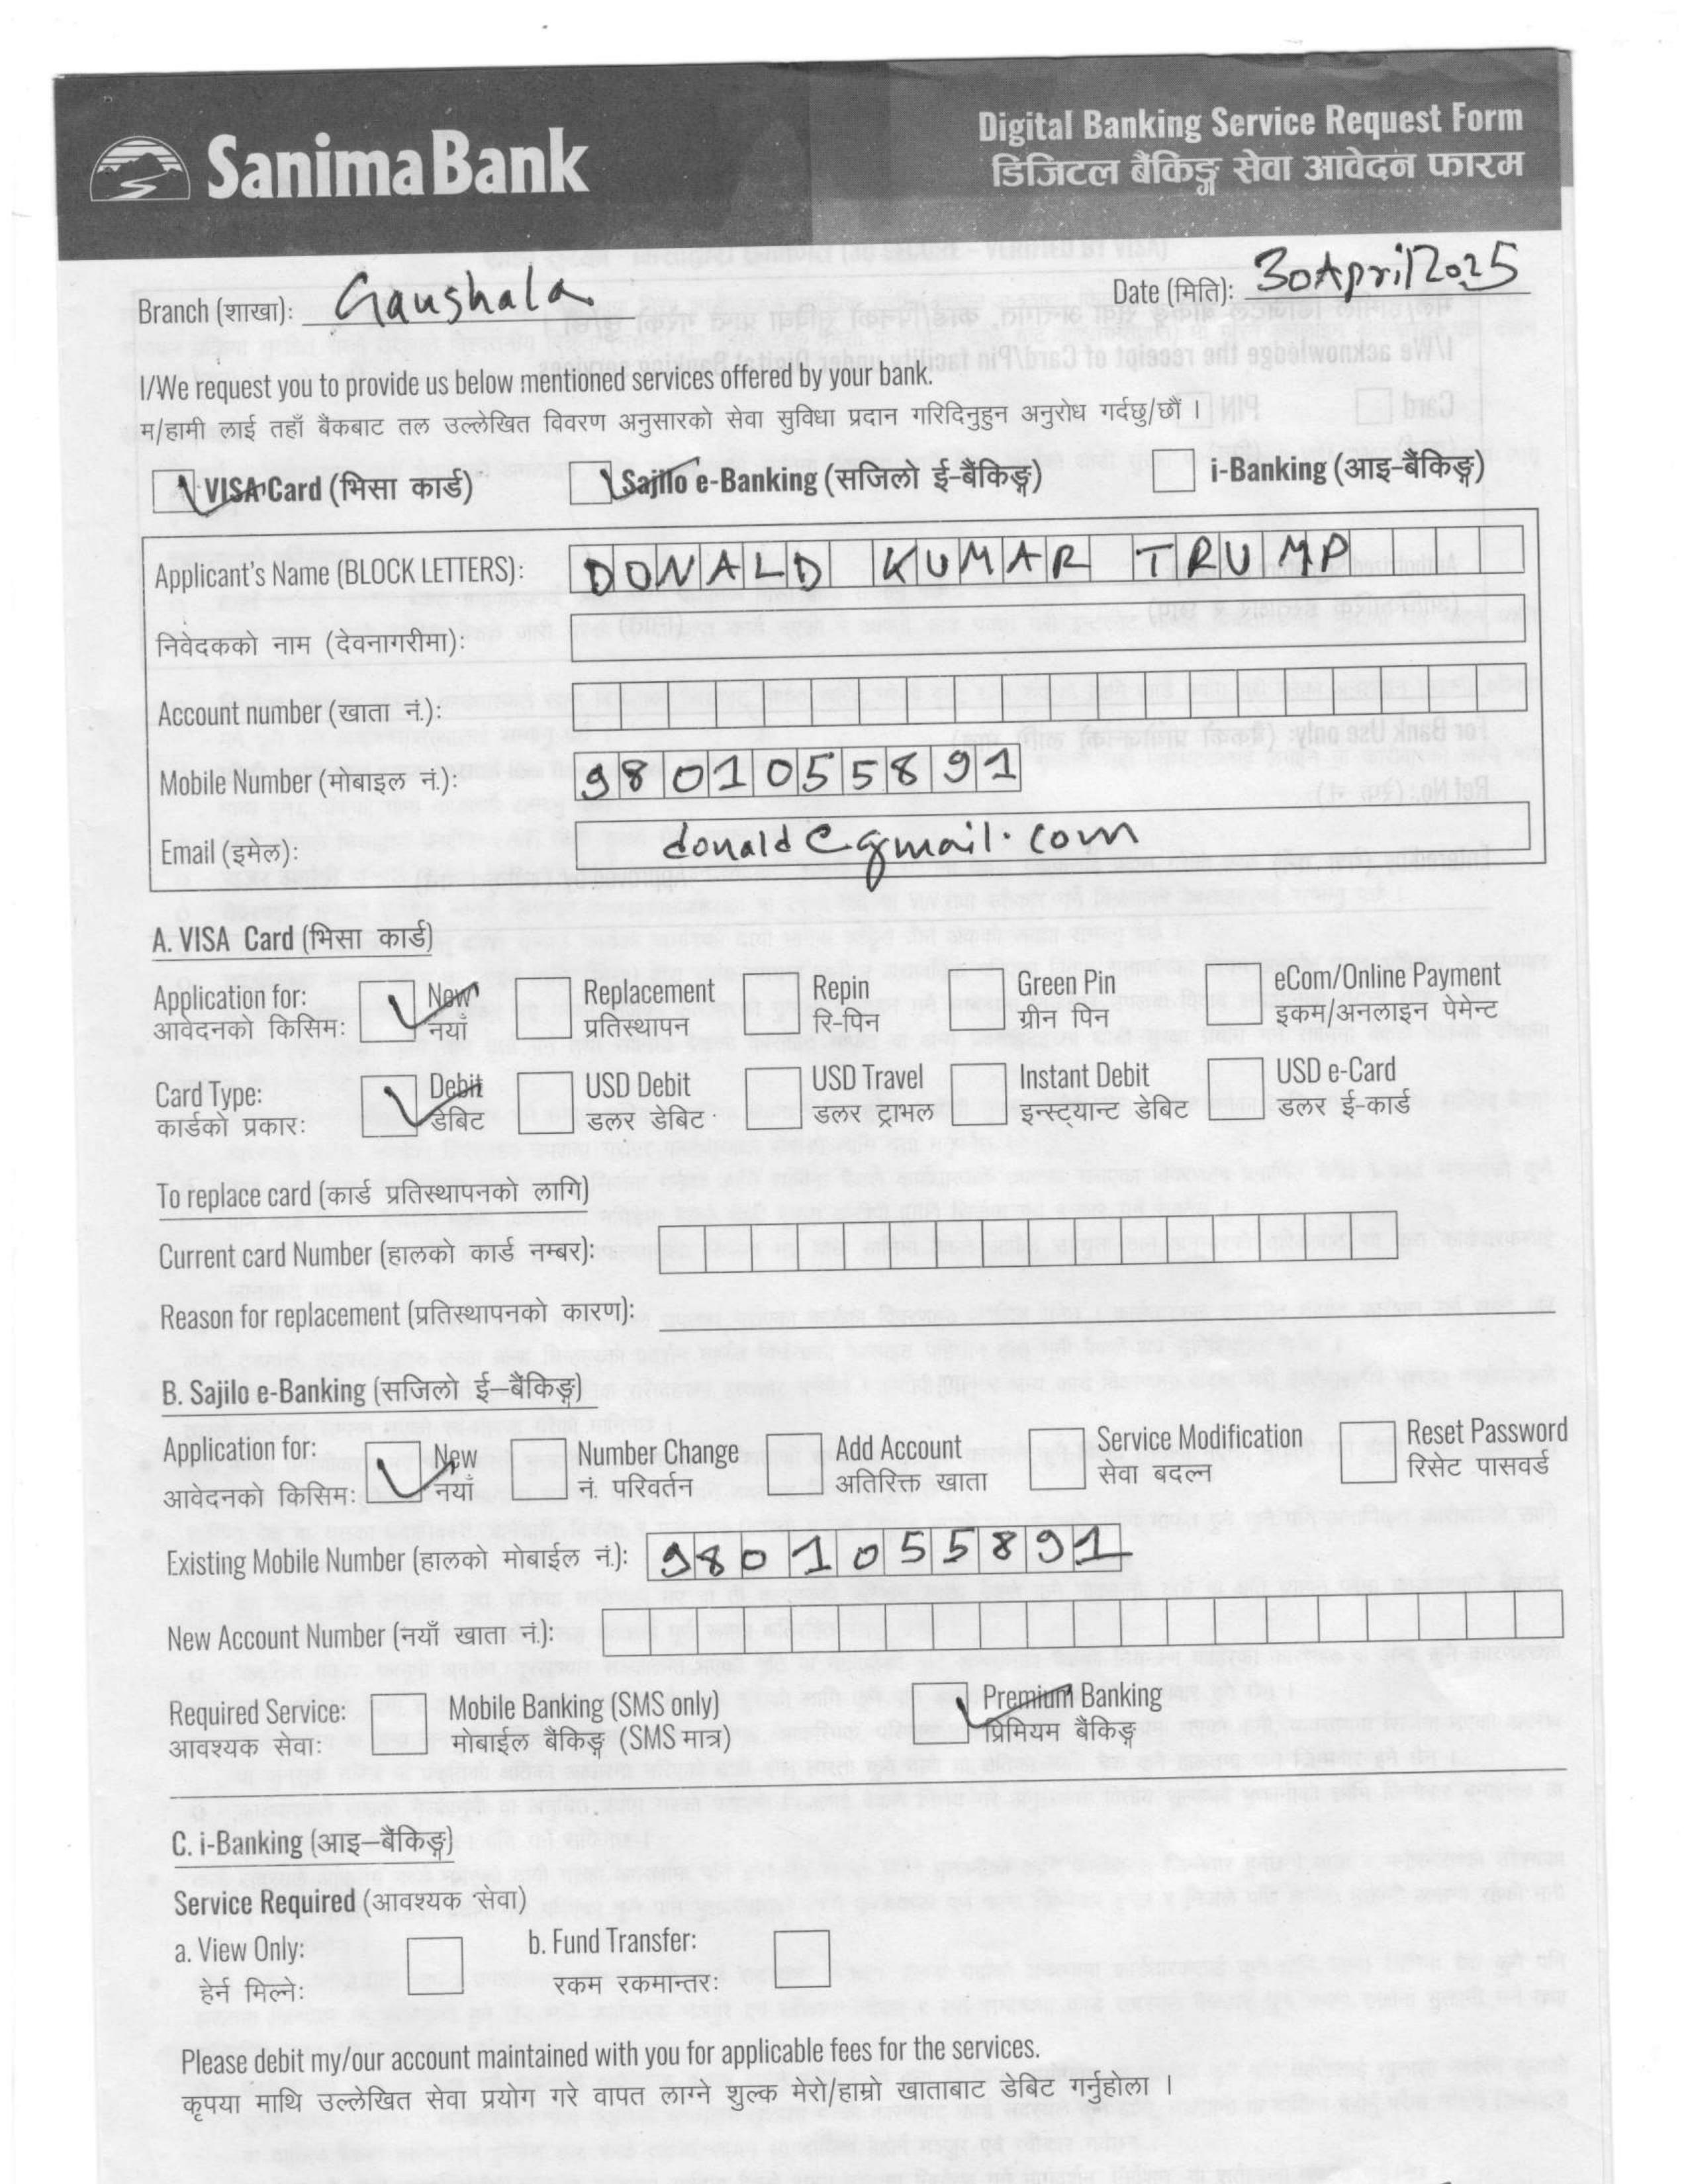 Sanima Bank
Digital Banking Service Request Form
डिजिटल बैंकिङ्ग सेवा आवेदन फारम
Branch (शाखा): Gaushala
Date (मिति): 30 April 2025
I/We request you to provide us below mentioned services offered by your bank.
म/हामी लाई तहाँ बैंकबाट तल उल्लेखित विवरण अनुसारको सेवा सुविधा प्रदान गरिदिनुहुन अनुरोध गर्दछु/छौं ।
VISA Card (भिसा कार्ड) Sajilo e-Banking (सजिलो ई-बैंकिङ्ग) i-Banking (आइ-बैंकिङ्ग)
Applicant's Name (BLOCK LETTERS): DONALD KUMAR TRUMP
निवेदकको नाम (देवनागरीमा):
Account number (खाता नं.):
Mobile Number (मोबाइल नं.): 9801055891
Email (इमेल): donald@gmail.com
A. VISA Card (भिसा कार्ड)
Application for: New Replacement Repin Green Pin eCom/Online Payment
आवेदनको किसिम: नयाँ प्रतिस्थापन रि-पिन ग्रीन पिन इकम/अनलाइन पेमेन्ट
Card Type: Debit USD Debit USD Travel Instant Debit USD e-Card
कार्डको प्रकार: डेबिट डलर डेबिट डलर ट्राभल इन्स्ट्यान्ट डेबिट डलर ई-कार्ड
To replace card (कार्ड प्रतिस्थापनको लागि)
Current card Number (हालको कार्ड नम्बर):
Reason for replacement (प्रतिस्थापनको कारण):
B. Sajilo e-Banking (सजिलो ई-बैंकिङ्ग)
Application for: New Number Change Add Account Service Modification Reset Password
आवेदनको किसिम: नयाँ नं. परिवर्तन अतिरिक्त खाता सेवा बदल्न रिसेट पासवर्ड
Existing Mobile Number (हालको मोबाईल नं.): 9801055891
New Account Number (नयाँ खाता नं.):
Required Service: Mobile Banking (SMS only) Premium Banking
आवश्यक सेवा: मोबाईल बैंकिङ्ग (SMS मात्र) प्रिमियम बैंकिङ्ग
C. i-Banking (आइ-बैंकिङ्ग)
Service Required (आवश्यक सेवा)
a. View Only: b. Fund Transfer:
हेर्न मिल्ने: रकम रकमान्तर:
Please debit my/our account maintained with you for applicable fees for the services.
कृपया माथि उल्लेखित सेवा प्रयोग गरे वापत लाग्ने शुल्क मेरो/हाम्रो खाताबाट डेबिट गर्नुहोला ।